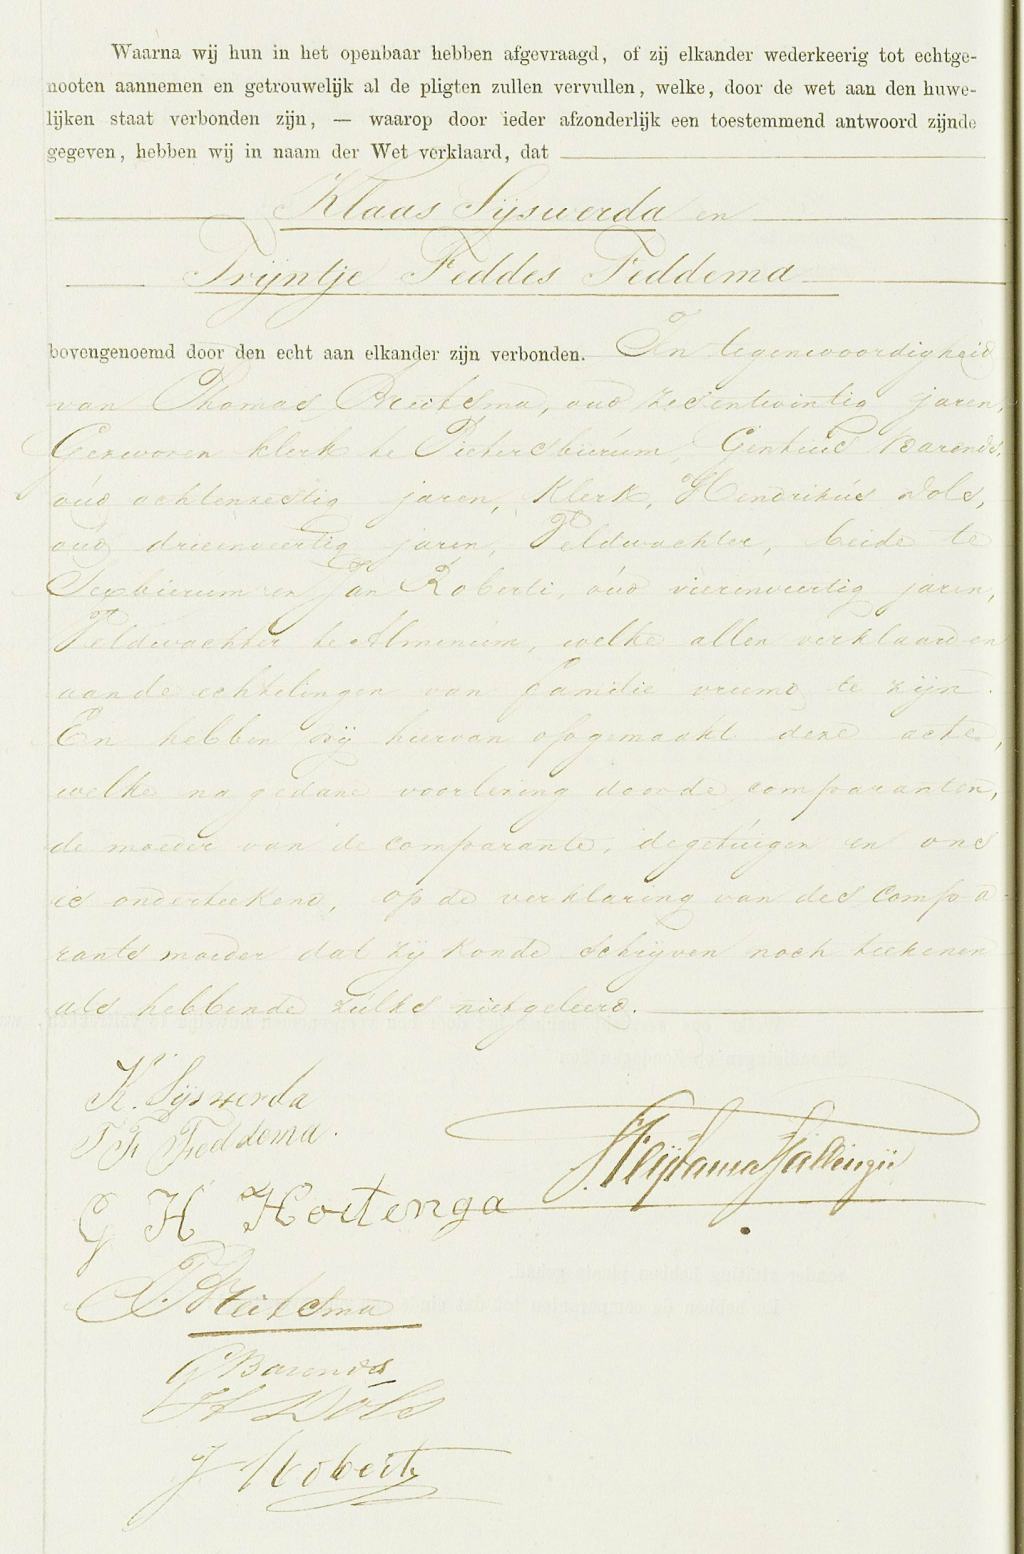 Waarna wij hun in het openbaar hebben afgevraagd, of zij elkander wederkeerig tot echtge-
nooten aannemen en getrouwelijk al de pligten zullen vervullen, welke, door de wet aan den huwe-
lijken staat verbonden zijn, — waarop door ieder afzonderlijk een toestemmend antwoord zijnde
gegeven, hebben wij in naam der Wet verklaard, dat
Klaas Sijswerda en
Trijntje Feddes Feddema
bovengenoemd door den echt aan elkander zijn verbonden. In tegenwoordigheid
van Thomas Breitsma, oud zesentwintig jaren,
Gezworen klerk te Pietersbierum, Gentius Barends,
oud achtenzestig jaren, Klerk, Hendrikus Dols,
oud drieenveertig jaren, Veldwachter, beide te
Sexbierum en Jan Roberti, oud vierenveertig jaren,
Veldwachter te Almenum, welke allen verklaarden
aan de echtelingen van familie vreemd te zijn.
En hebben wij hiervan opgemaakt deze acte,
welke na gedane voorlezing door de comparanten,
de moeder van de comparante, de getuigen en ons
is onderteekend, op de verklaring van des compa-
rants moeder dat zij konde schrijven noch teekenen
als hebbende zulks niet geleerd.
K. Sijswerda
T F Feddema.
G H Hoitenga
T. Breitsma
G Barends
H Dols
J Roberti